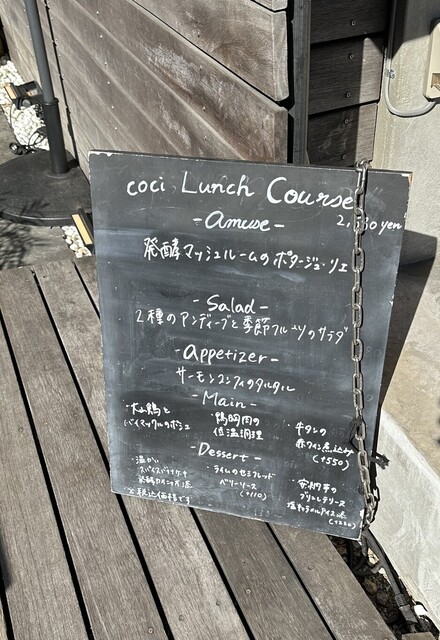 coci Lunch Course
-Amuse-
発酵マッシュルームのポタージュ・リエ
-Salad-
2種のアンディーブと季節フルーツのサラダ
-Appetizer-
サーモンコンフィのタルタル
-Main-
・大山鶏と
・鴨胸肉の
低温調理
・牛タンの
赤ワイン煮込み
(+550)
-Dessert-
・温かい
・ライムのセミフレッド
ベリーソース
(+110)
・安納芋の
ブリュレテリーヌ
塩キャラメルアイス添え
※税込価格です